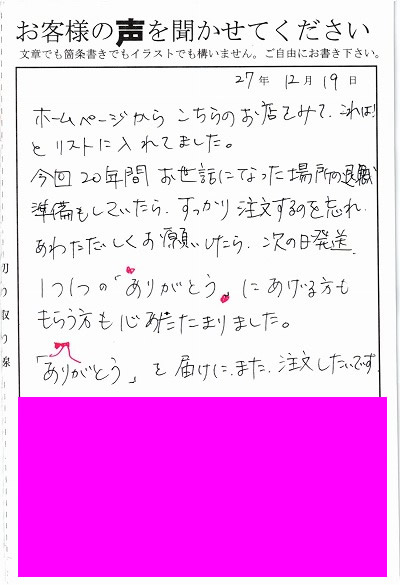 お客様の声を聞かせてください
文章でも箇条書きでもイラストでも構いません。ご自由にお書き下さい。
27年 12月 19日
ホームページから こちらのお店をみて、これは!
と リストに入れてました。
今回 20年間 お世話になった場所の退職
準備もしていたら、すっかり 注文するのを忘れ、
あわただしくお願いしたら、次の日発送、
1つ1つの「ありがとう」にあげる方も
もらう方も心あたたまりました。
「ありがとう」を届けに、また、注文したいです。
切り取り線